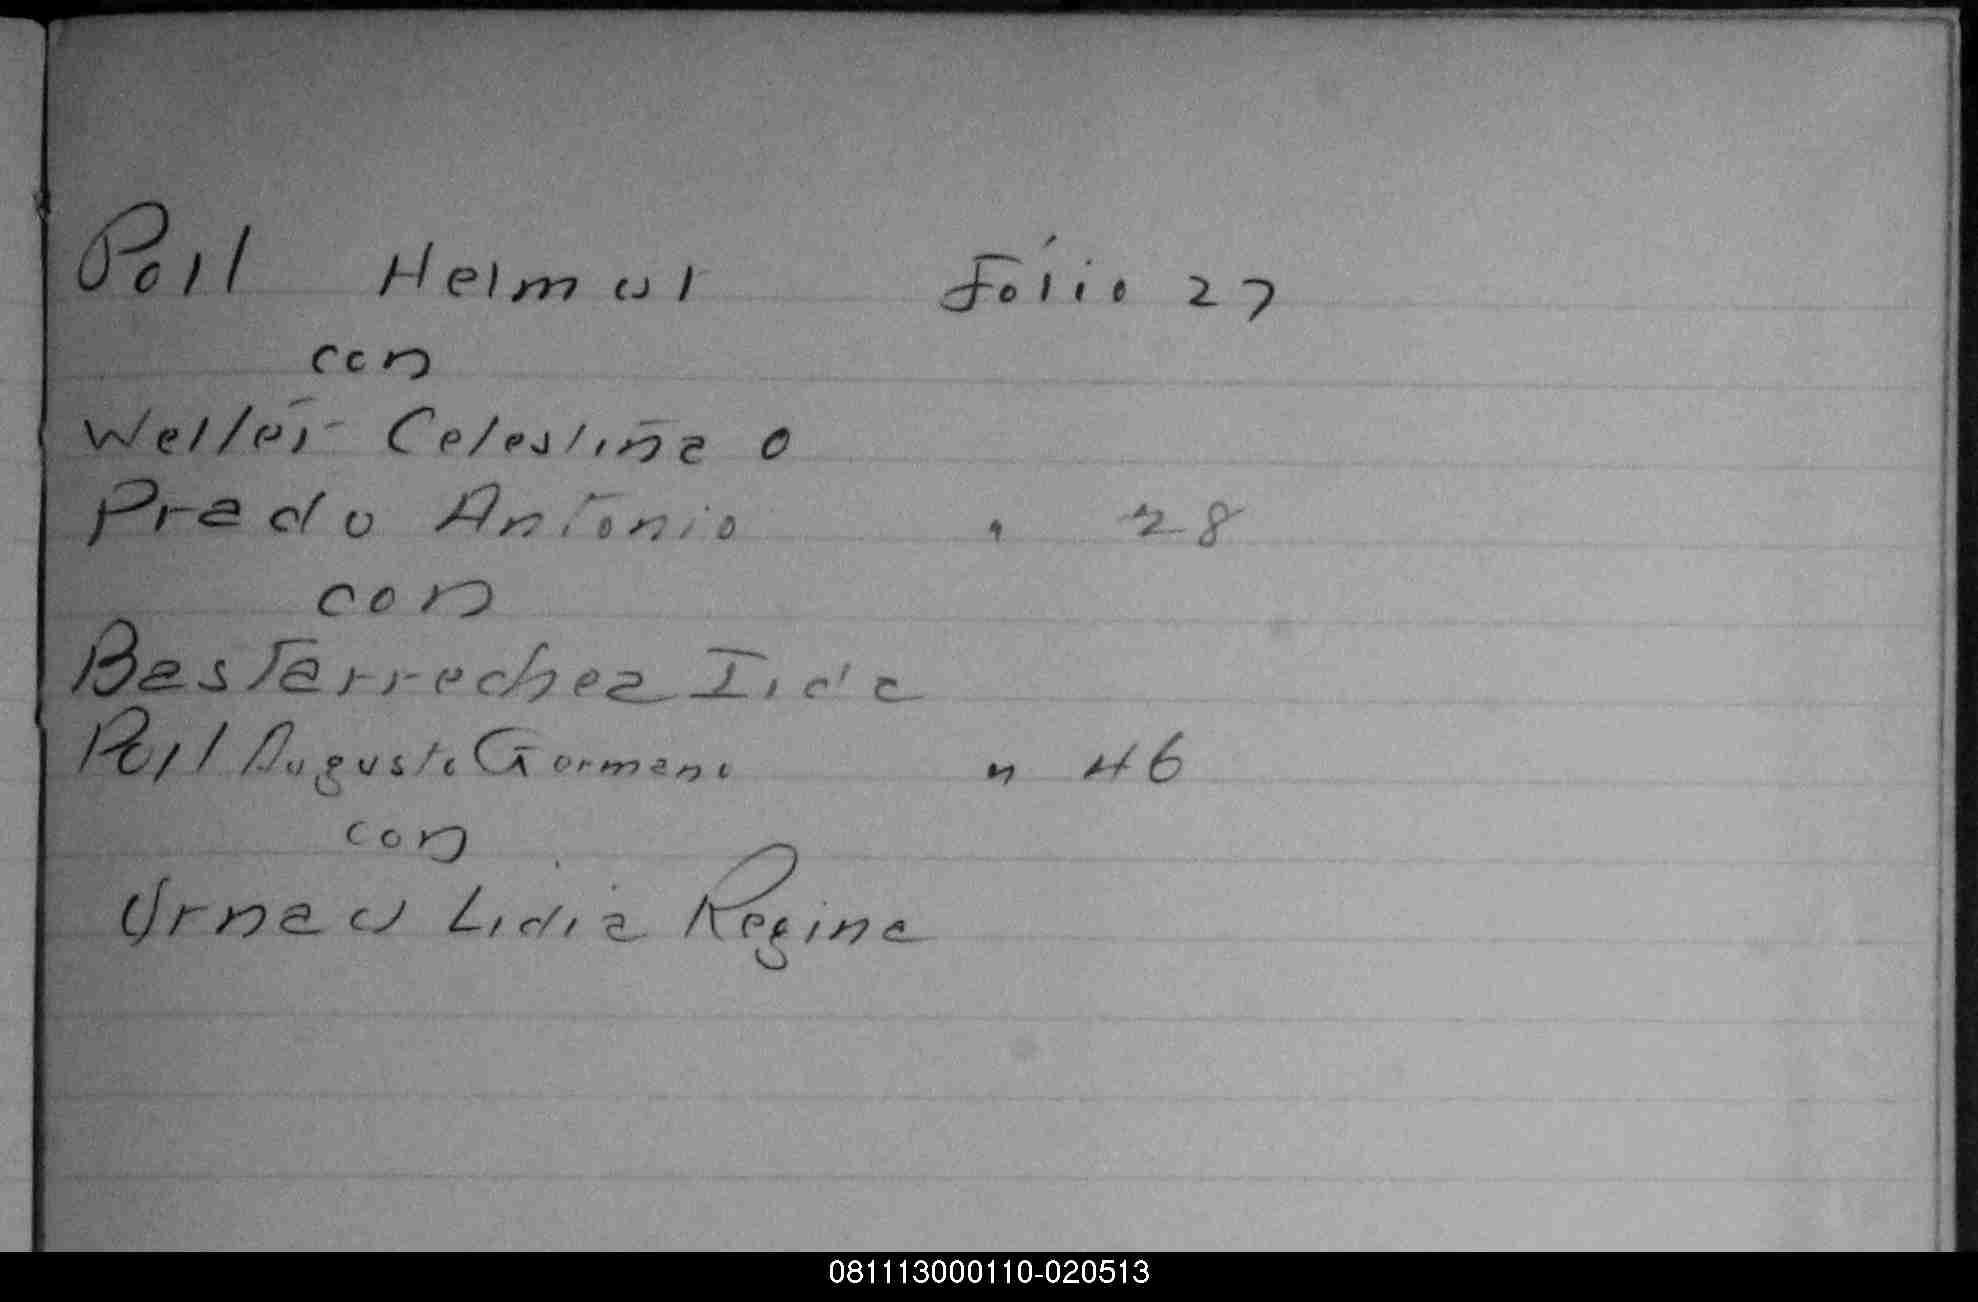 Poll Helmut Fólio 27
con
Weller Celestina O
Prado Antonio " 28
con
Basterrechea Iida
Poll Augusto Germano " 46
con
Urnau Lidia Regina
081113000110-020513